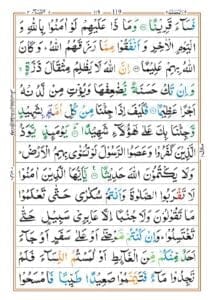 فَسَآءَ قَرِيْنًا ۝ وَمَا ذَا عَلَيْهِمْ لَوْ اٰمَنُوْا بِاللّٰهِ وَ
الْيَوْمِ الْاٰخِرِ وَاَنْفَقُوْا مِمَّا رَزَقَهُمُ اللّٰهُ وَكَانَ
اللّٰهُ بِهِمْ عَلِيْمًا ۝ اِنَّ اللّٰهَ لَا يَظْلِمُ مِثْقَالَ ذَرَّةٍ
وَاِنْ تَكُ حَسَنَةً يُّضٰعِفْهَا وَيُؤْتِ مِنْ لَّدُنْهُ
اَجْرًا عَظِيْمًا ۝ فَكَيْفَ اِذَا جِئْنَا مِنْ كُلِّ اُمَّةٍۭ بِشَهِيْدٍ
وَّجِئْنَا بِكَ عَلٰى هٰٓؤُلَآءِ شَهِيْدًا ۝ يَوْمَئِذٍ يَّوَدُّ
الَّذِيْنَ كَفَرُوْا وَعَصَوُا الرَّسُوْلَ لَوْ تُسَوّٰى بِهِمُ الْاَرْضُ
وَلَا يَكْتُمُوْنَ اللّٰهَ حَدِيْثًا ۝ يٰٓاَيُّهَا الَّذِيْنَ اٰمَنُوْا
لَا تَقْرَبُوا الصَّلٰوةَ وَاَنْتُمْ سُكٰرٰى حَتّٰى تَعْلَمُوْا
مَا تَقُوْلُوْنَ وَلَا جُنُبًا اِلَّا عَابِرِيْ سَبِيْلٍ حَتّٰى
تَغْتَسِلُوْا وَاِنْ كُنْتُمْ مَّرْضٰٓى اَوْ عَلٰى سَفَرٍ اَوْ جَآءَ
اَحَدٌ مِّنْكُمْ مِّنَ الْغَآئِطِ اَوْ لٰمَسْتُمُ النِّسَآءَ فَلَمْ
تَجِدُوْا مَآءً فَتَيَمَّمُوْا صَعِيْدًا طَيِّبًا فَامْسَحُوْا